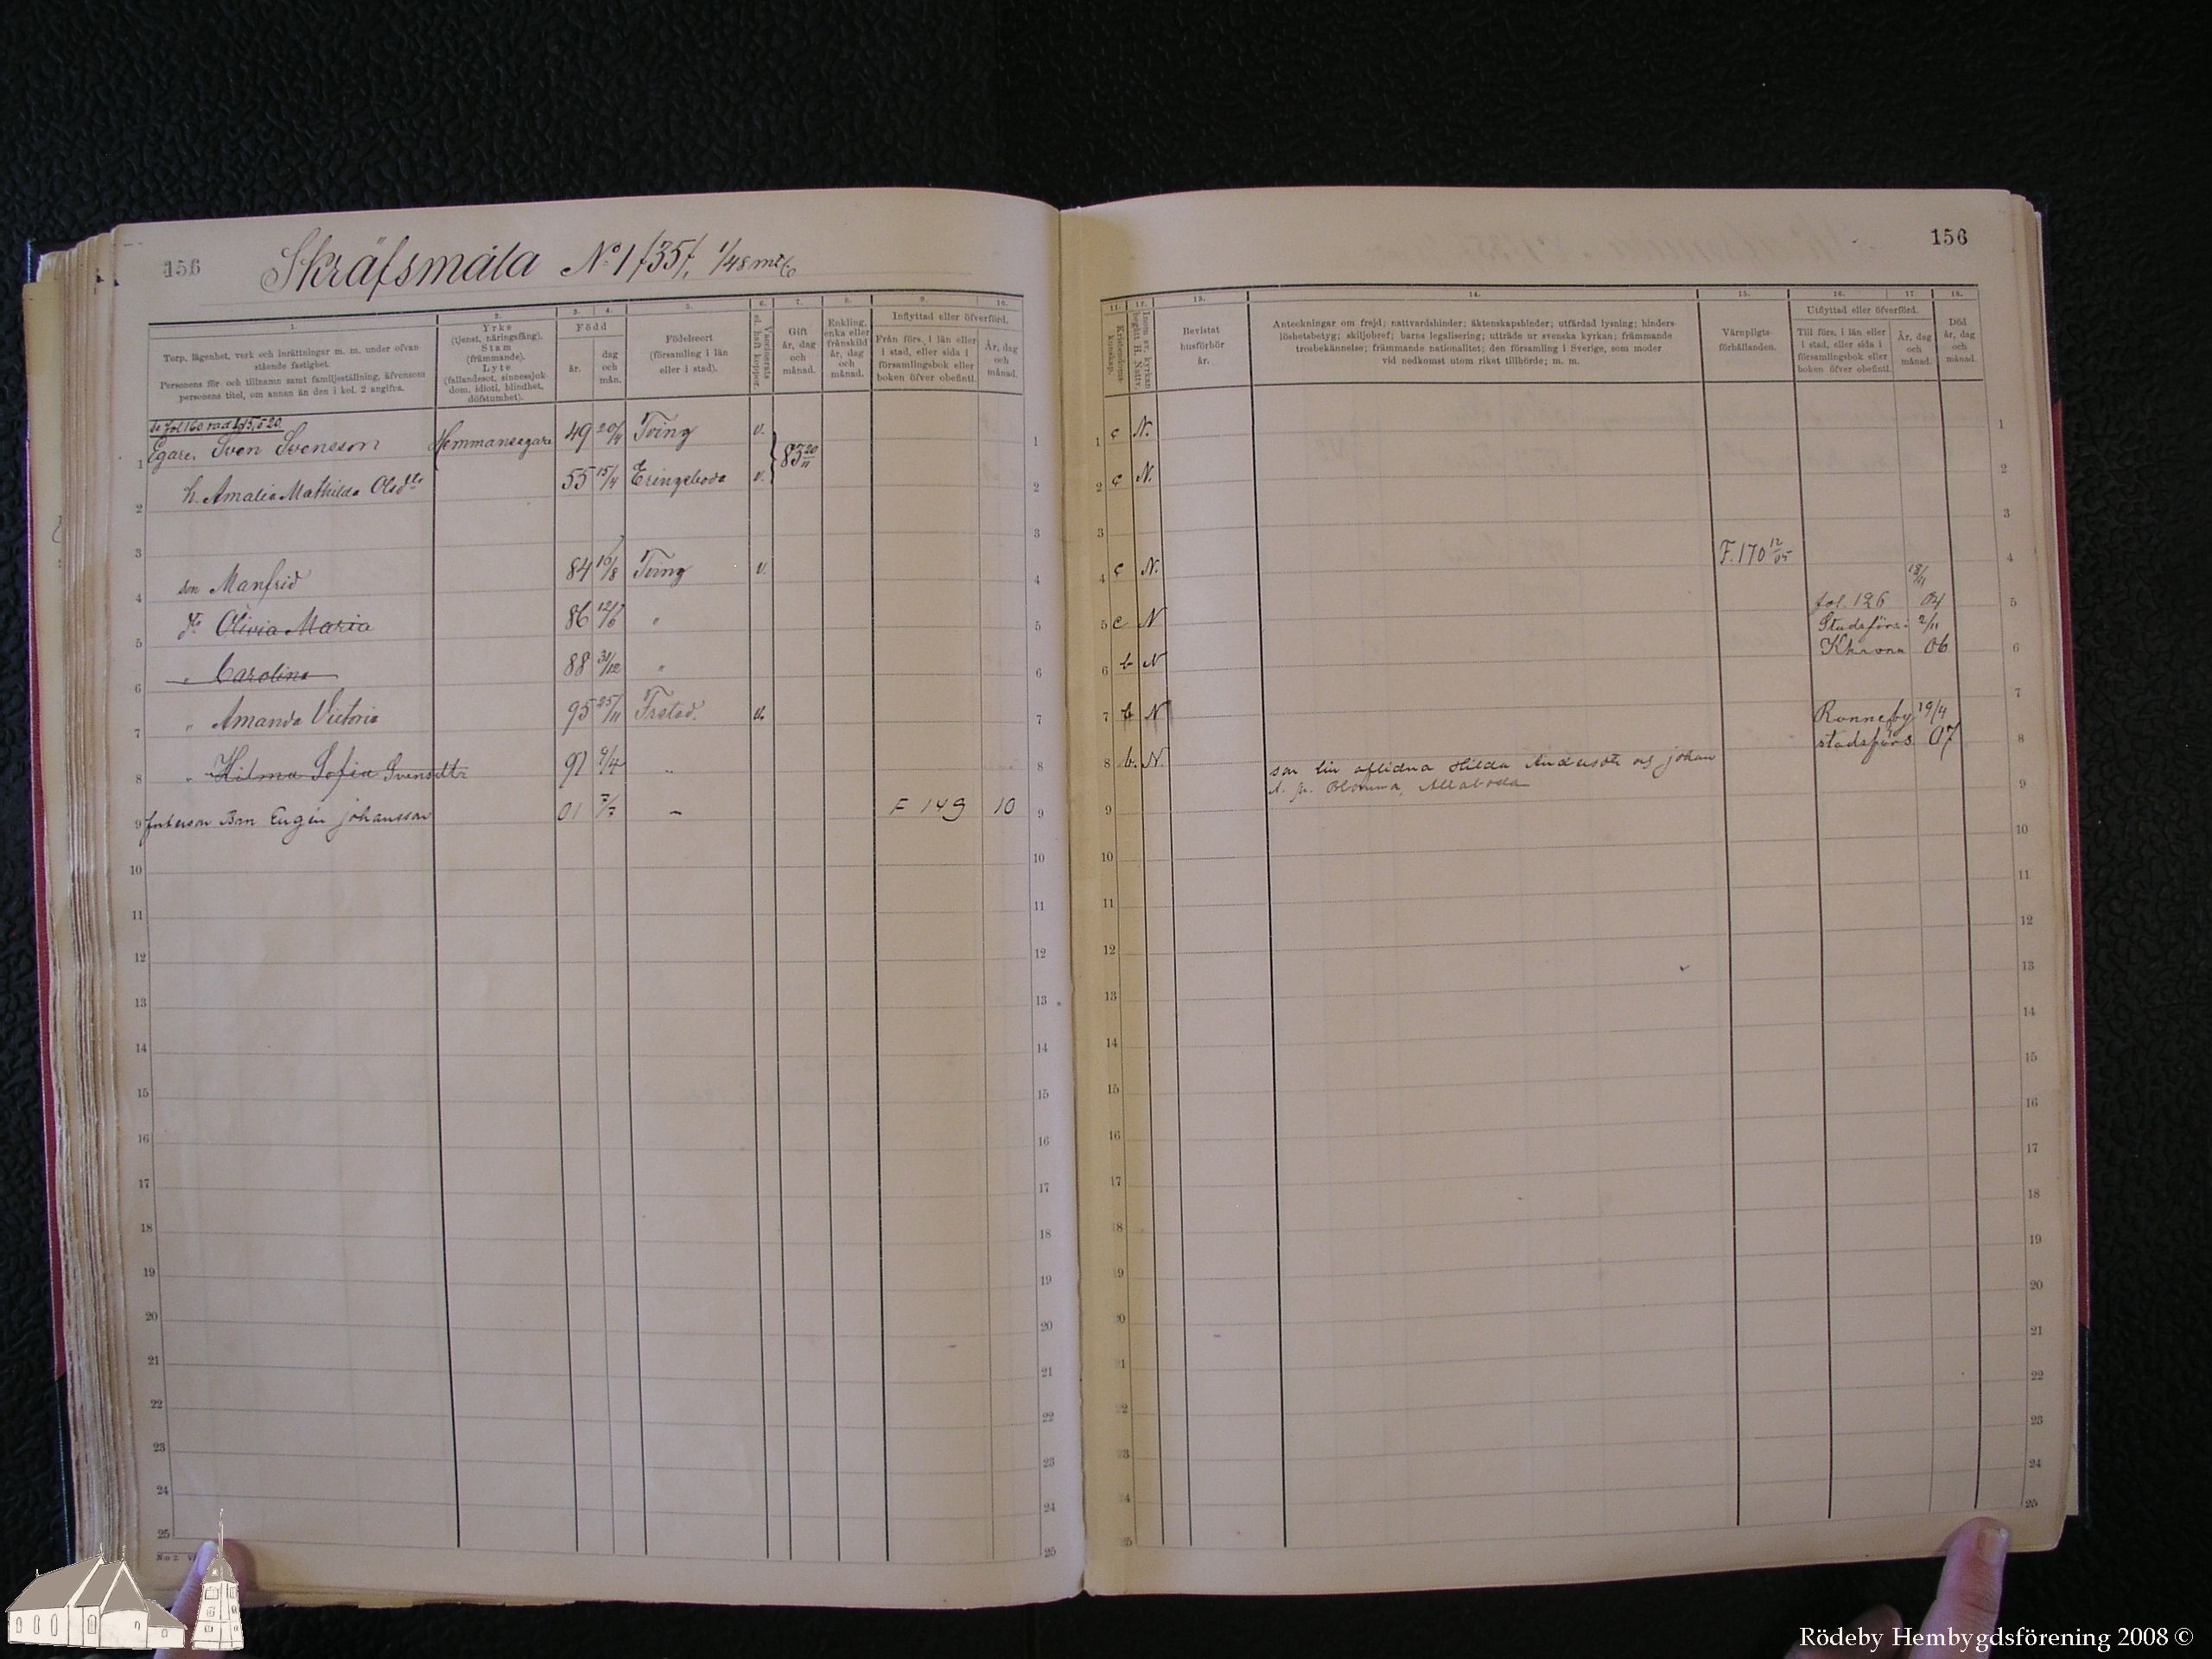 156
Skräfsmåla No 1 /35/, 1/48 mtl
1.
2.
3.
4.
5.
6.
7.
8.
9.
10.
Torp, lägenhet, verk och inrättningar m. m. under ofvan
stående fastighet.
Personens för- och tillnamn samt familjeställning, äfvensom
personens titel, om annan än den i kol. 2 angifva.
Yrke
(tjenst, näringsfång).
Stam
(främmande).
Lyte
(fallandesot, sinnessjuk-
dom, idioti, blindhet,
döfstumhet).
Född
år.
dag
och
mån.
Födelseort
(församling i län
eller i stad).
Vaccinerats
el. haft koppor.
Gift
år, dag
och
månad.
Enkling,
enka eller
frånskild
år, dag
och
månad.
Inflyttad eller öfverförd.
Från förs. i län eller
i stad, eller sida i
församlingsbok eller
boken öfver obefintl.
År, dag
och
månad.
Egare, Sven Svensson Hemmansegare 49 20/4 Tving v. 83 20/11
h. Amalia Mathilda Olsdtr 55 15/4 Eringeboda v.
son Manfrid 84 16/8 Tving v.
dr Olivia Maria 86 12/6 "
" Carolina 88 31/12 "
" Amanda Victoria 95 25/11 Frstad. v.
" Hilma Sofia Svensdtr 91 9/4 "
Fosterson Eugén Johansson 01 7/7 – F 149 10
No 2
156
11.
12.
13.
14.
15.
16.
17.
18.
Kristendoms-
kunskap.
Inom sv. kyrkan
begått H. Nattv.
Bevistat
husförhör
år.
Anteckningar om frejd; nattvardshinder; äktenskapshinder; utfärdad lysning; hinders-
löshetsbetyg; skiljobref; barns legalisering; utträde ur svenska kyrkan; främmande
trosbekännelse; främmande nationalitet; den församling i Sverige, som moder
vid nedkomst utom riket tillhörde; m. m.
Värnpligts-
förhållanden.
Utflyttad eller öfverförd.
Till förs. i län eller
i stad, eller sida i
församlingsbok eller
boken öfver obefintl.
År, dag
och
månad.
Död
år, dag
och
månad.
1 c N.
2 c N.
3
4 c N. F. 170 12/05
18/11
5 c N fol. 126 04
Stadsförs. 2/11
6 b N Khrona 06
7 b N Ronneby 19/4
stadsförs. 07
8 b. N. son till aflidna Hilda Andersdtr och Johan
Blomma, Allaboda
9
10
11
12
13
14
15
16
17
18
19
20
21
22
23
24
25
Rödeby Hembygdsförening 2008 ©